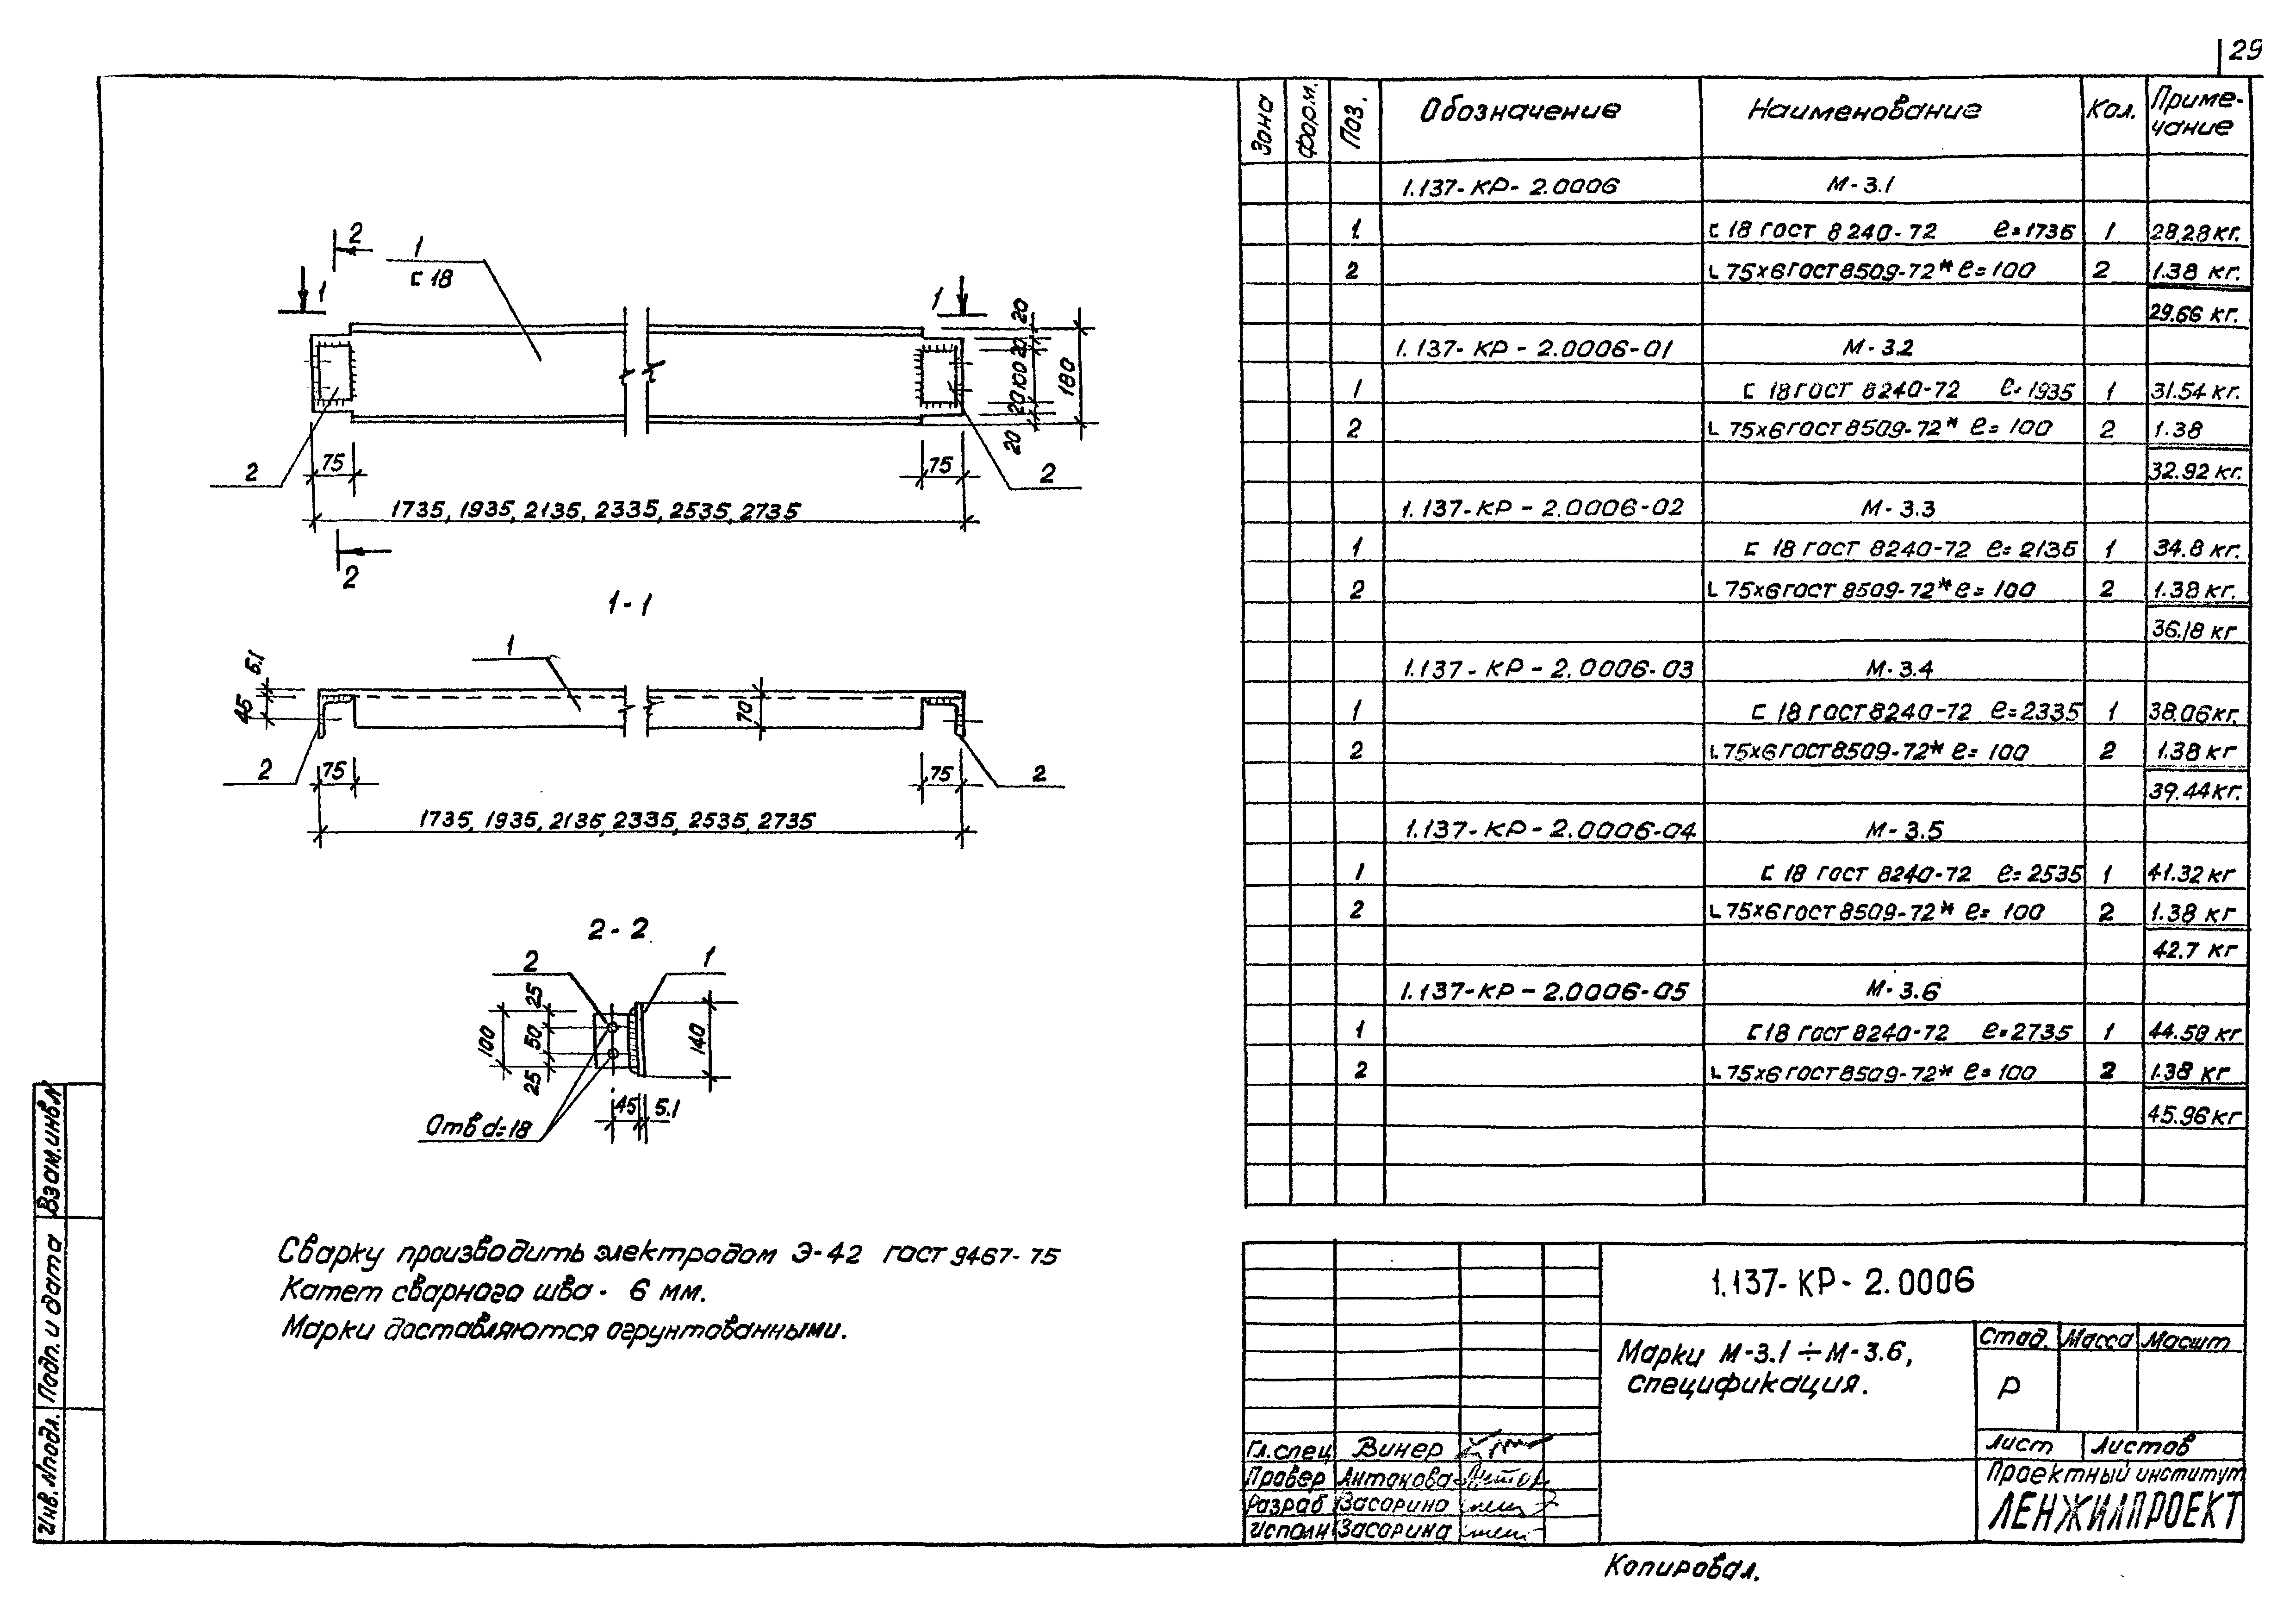 29
Зона Форм. Поз. Обозначение Наименование Кол. Приме-
чание
1.137-КР-2.0006 М-3.1
1. [ 18 ГОСТ 8240-72 ℓ=1735 1 28,28 кг.
2 L 75×6 ГОСТ 8509-72* ℓ=100 2 1.38 кг.
29.66 кг.
1.137-КР-2.0006-01 М-3.2
1 [ 18 ГОСТ 8240-72 ℓ=1935 1 31.54 кг.
2 L 75×6 ГОСТ 8509-72* ℓ=100 2 1.38
32.92 кг.
1.137-КР-2.0006-02 М-3.3
1 [ 18 ГОСТ 8240-72 ℓ=2135 1 34.8 кг.
2 L 75×6 ГОСТ 8509-72* ℓ=100 2 1.38 кг.
36.18 кг
1.137-КР-2.0006-03 М-3.4
1 [ 18 ГОСТ 8240-72 ℓ=2335 1 38.06 кг.
2 L 75×6 ГОСТ 8509-72* ℓ=100 2 1.38 кг
39.44 кг.
1.137-КР-2.0006-04 М-3.5
1 [ 18 ГОСТ 8240-72 ℓ=2535 1 41.32 кг
2 L 75×6 ГОСТ 8509-72* ℓ=100 2 1.38 кг
42.7 кг
1.137-КР-2.0006-05 М-3.6
1 [ 18 ГОСТ 8240-72 ℓ=2735 1 44.58 кг
2 L 75×6 ГОСТ 8509-72* ℓ=100 2 1.38 кг
45.96 кг
2
1
[ 18
1
1
20
20
100
20
20
180
2
75
75
2
1735, 1935, 2135, 2335, 2535, 2735
2
1-1
1
5.1
45
70
2
75
75
2
1735, 1935, 2135, 2335, 2535, 2735
2-2
2
1
25
50
25
100
140
45
5.1
Отв d=18
Сварку производить электродом Э-42 ГОСТ 9467-75
Катет сварного шва - 6 мм.
Марки доставляются огрунтованными.
Взам.инв.№
Подп. и дата
Инв.№подл.
1.137-КР-2.0006
Марки М-3.1÷М-3.6,
спецификация.
Стад. Масса Масшт
Р
Лист Листов
Проектный институт
ЛЕНЖИЛПРОЕКТ
Гл.спец Винер
Провер Антонова
Разраб Засорина
Исполн Засорина
Копировал.